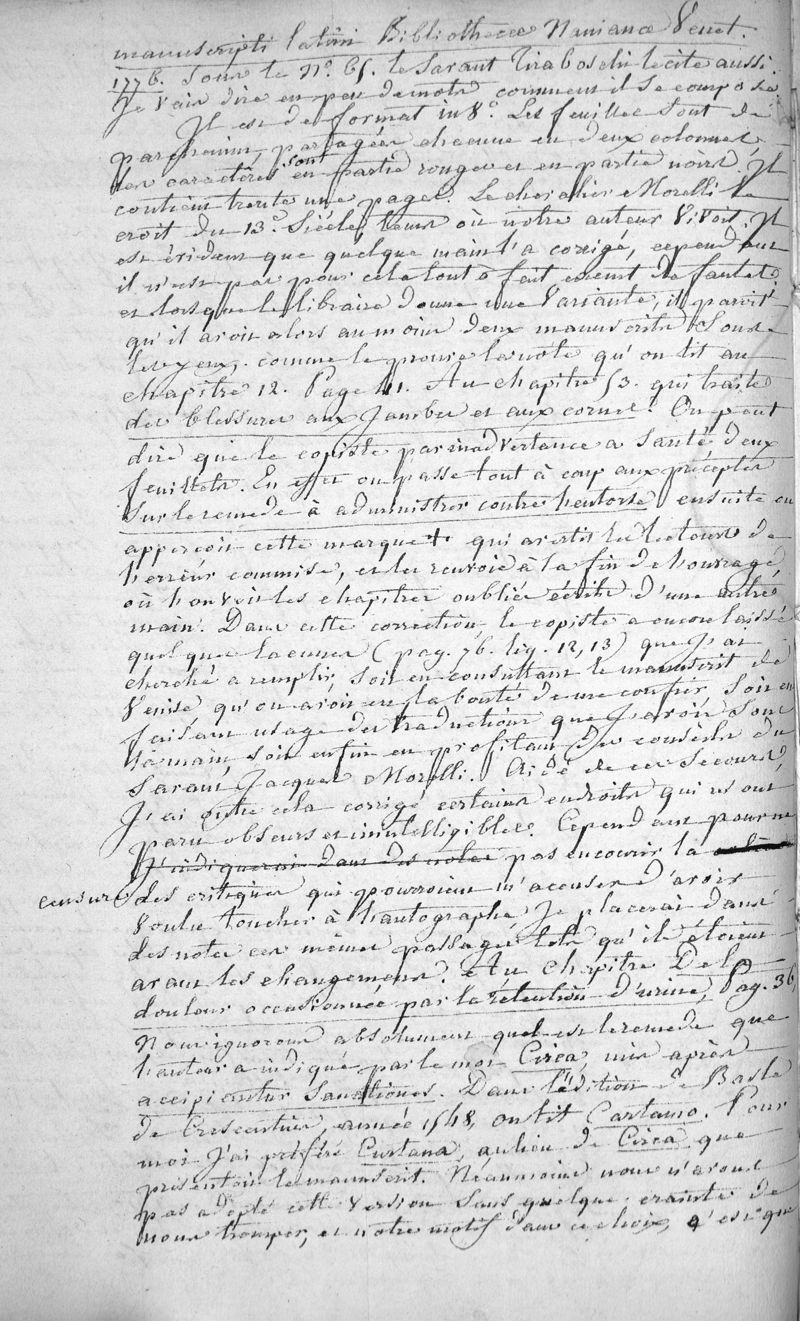 manuscripti latini Bibliothecæ Nanianæ Venet.
1776. sous le No. 65. le savant Tiraboschi le cite aussi.
Je vais dire en peu de mots comment il se compose
Il est de format in 8o. Les feuilles sont de
parchemin, partagées chacune en deux colonnes,
les caractères sont en partie rouges et en partie noirs. Il
contient trente une pages. Le chevalier Morelli le
croit du 13e. Siécle, tems où notre auteur vivoit. Il
est évident que quelque main l'a corrigé, cependant
il n'est pas pour cela tout à fait exemt de fautes;
et lorsque le libraire donne une variante, il paroit
qu'il avoit alors au moins deux manuscrits sous
les yeux, comme le prouve la note qu'on lit au
chapitre 12. Page 41. Au chapitre 53. qui traite
des blessures aux jambes et aux cornes. On peut
dire que le copiste par inadvertance a sauté deux
feuillets. En effet on passe tout à coup aux préceptes
sur le remede à administrer contre l'entorse, ensuite on
apperçoit cette marque + qui avertit les lecteurs de
l'erreur commise, et les renvoie à la fin de l'ouvrage
où l'on voit les chapitres oubliés écrits d'une autre
main. Dans cette correction le copiste a encore laissé
quelques lacunes (pag. 76. lig. 12, 13) que j'ai
cherché a remplir, soit en consultant le manuscrit de
Venise, qu'on avoit eu la bonté de me confier, soit en
faisant usage des traductions que j'avois sous
la main, soit enfin en profitant des conseils du
savant Jacques Morelli. Aidé de ces secours,
j'ai outre cela corrigé certains endroits qui m'ont
paru obscurs et inintelligibles. Cependant pour ne
J'indiquerai dans des notes pas encourir la
censure des critiques qui pourroient m'accuser d'avoir
voulu toucher à l'autographe, je placerai dans
des notes ces mêmes passages tels qu'ils étoient
avant les changemens. Au chapitre De la
douleur occasionnée par la rétention d'urine, Pag. 36,
Nous ignorons absolument quel est le remede que
l'auteur a indiqué par le mot Circa, mis après
accipiantur Sanctiones. Dans l'édition de Basle
de Crescentius, année 1548, on lit Cartamo. Pour
moi j'ai préféré Curtana, au lieu de Circa que
présentoit le manuscrit. Néanmoins nous n'avons
pas adopté cette version sans quelque crainte de
nous tromper, et notre motif dans ce choix, c'est que